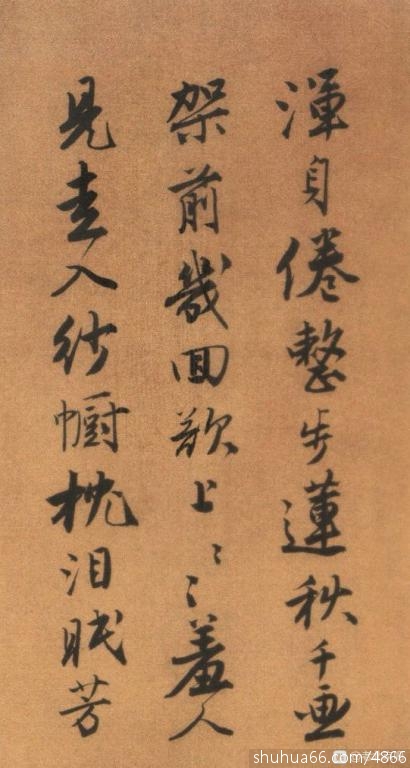 渾身倦整步蓮秋千画
架前幾回欲上〻〻羞人
見走入紗幮枕泪眠芳
shuhua66.com/4866